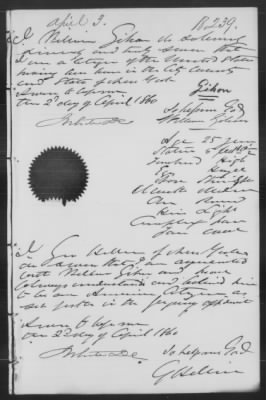 April 3.
18239.
I William Gihon do solemnly
sincerely and truly swear that
I am a citizen of the United States
having been born in the City County
and State of New York
Sworn to before me
this 2d day of April 1860
Gihon
So help me God
William Gihon
Age 25 years
Stature 5 feet
Forehead High
Eyes
Nose Straight
Mouth Medium
Chin Round
Hair Light
Complexion Fair
Face Oval
I Geo of New York
do swear that I am acquainted
with William Gihon and have
always understood and believed him
to be an American Citizen as
set forth in the foregoing affidavit
Sworn to before me
this 2d day of April 1860
So help me God